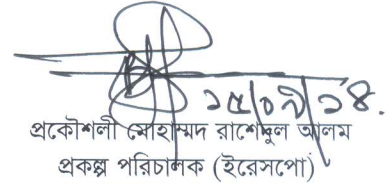 ১৫/০৭/১৪
প্রকৌশলী মোহাম্মদ রাশেদুল আলম
প্রকল্প পরিচালক (ইরেসপো)